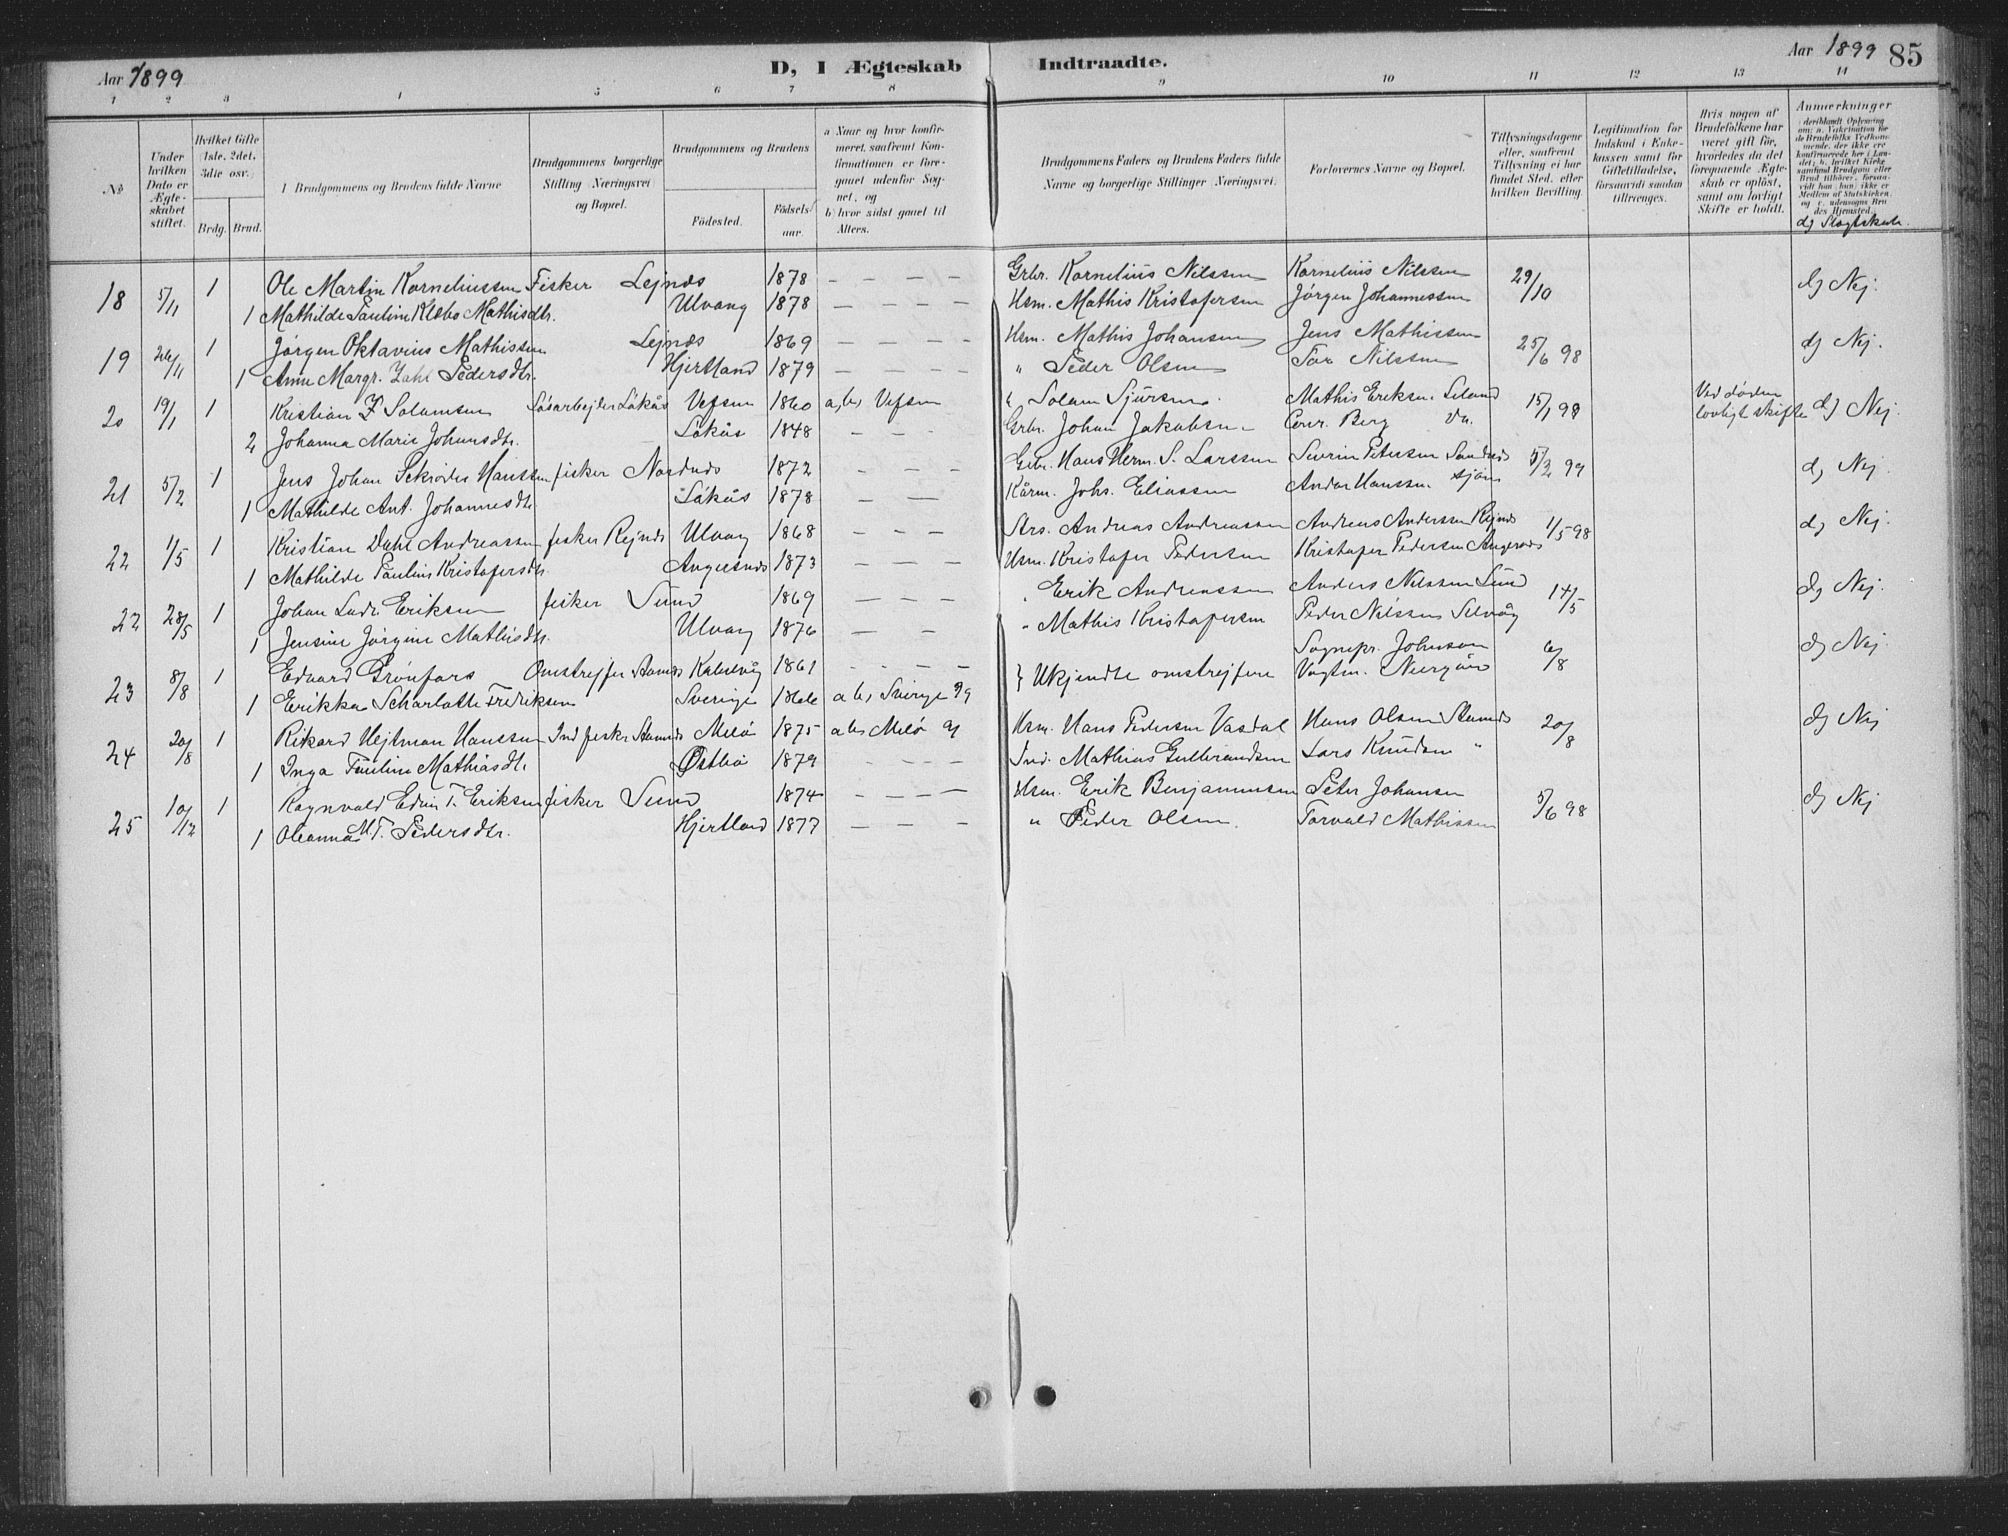 Aar 1899
D, I Ægteskab Indtraadte.
Aar 1899 85
1 2 3 4 5 6 7 8 9 10 11 12 13 14
No
Under hvilken Dato er Ægteskabet stiftet.
Hvilket Gifte 1ste, 2det, 3die osv.
Brdg. Brud.
Brudgommens og Brudens fulde Navne
Brudgommens borgerlige Stilling Næringsvei og Bopæl.
Brudgommens og Brudens
Födested. Födselsaar.
a Naar og hvor konfirmeret, saafremt Konfirmationen er foregaaet udenfor Sognet, og
b) hvor sidst gaaet til Alters.
Brudgommens Faders og Brudens Faders fulde Navne og borgerlige Stillinger Næringsvei.
Forlovernes Navne og Bopæl.
Tillysningsdagene eller, saafremt Tillysning ei har fundet Sted, efter hvilken Bevilling
Legitimation for Indskud i Enkekassen samt for Giftetilladelse, forsaavidt saadan tiltrænges.
Hvis nogen af Brudefolkene har været gift för, hvorledes da det foregaaende Ægteskab er oplöst, samt om lovligt Skifte er holdt.
Anmærkninger
d) Slægtskab.
18 5/11 1 Ole Martin Korneliussen Fisker Lejnds 1878 – – – – Grbr. Kornelius Nilssen Kornelius Nilssen 29/10 d) Nej.
1 Mathilde Pauline Klebo Mathisdtr. Ulvang 1878 – – – – Hsm. Mathis Kristofersen Jørgen Johannessen
19 26/11 1 Jørgen Oktavius Mathissen Lejnds 1869 – – – – Hsm. Mathis Johansen Jens Mathissen 25/6 98 d) Nej.
1 Anne Margr. Zahl Pedersdtr. Hjertland 1879 – – – – " Peder Olsen Tor Nilssen
20 19/1 1 Kristian Z Solamsen Løsarbejder Låkås Vefsen 1860 a, b, Vefsen " Solam Sjursen. Mathis Eriksen Leland 15/1 98 Ved døden lovligt skifte d) Nej.
2 Johanna Marie Johansdtr. Låkås 1848 – – – Grbr. Johan Jakobsen Conr. Berg
21 5/2 1 Jens Johan Schrøder Hanssen fisker Nordnds 1872 – – – Grbr. Hans Herm. S. Larssen Severin Petersen Sandnds 5/2 99 d) Nej.
1 Mathilde Ant. Johannesdtr Låkås 1878 – – Kårm. Johs. Eliassen Andor Hanssen Sjøns
22 1/5 1 Kristian Dahl Andreassen fisker Rejnds Ulvang 1868 – – – Strs. Andreas Andreassen Andreas Anderssen Rejnds 1/5 98 d) Nej.
1 Mathilde Pauline Kristofersdtr. Angersnds 1873 – – – Hsm. Kristofer Pedersen Kristofer Pedersen Angersnds
22 28/5 1 Johan Ludv. Eriksen fisker Sund 1869 – – – " Erik Andreassen Anders Nilssen Sund 14/5 d) Nej.
1 Jensine Jørgine Mathisdtr. Ulvang 1876 – – " Mathis Kristofersen Peder Nilssen Selvåg
23 8/8 1 Edvard Grønfors Omstrejfer Stamnds Kabelvåg 1861 – – – – } Ukjendte omstrejfere Sognepr. Johnson 6/8 d) Nej.
1 Erikka Scharlotte Fredriksen Sverige 1866 a b, Sverige 99 Vagtm. Neergård
24 20/8 1 Rikard Hejtman Hanssen Ind fisker Stamnds Melø 1875 a b, Melø 91 Hsm. Hans Pedersen Vasdal Hans Olsen Stamnds 20/8 d) Nej
1 Inga Pauline Mathiasdtr. Østbø 1879 – – – Ind. Mathias Gulbrandsen Lars Knudsen "
25 10/12 1 Ragnvald Edvin T. Eriksen fisker Sund 1874 – – – – Hsm. Erik Benjaminsen Peter Johansen 5/6 98 d) Nej
1 Oleanna M T. Pedersdtr. Hjertland 1877 – – – " Peder Olsen. Torvald Mathissen